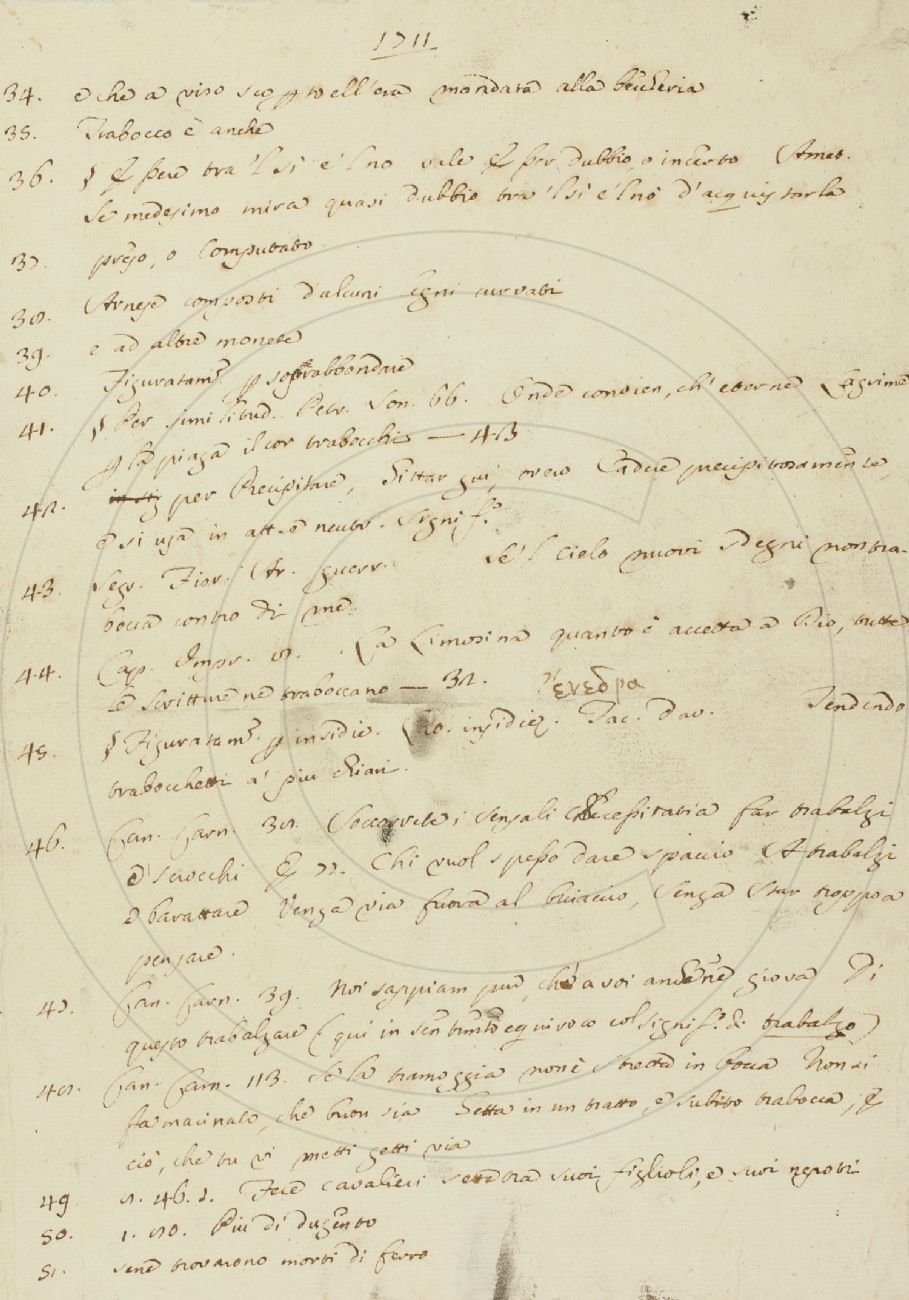 1711
34. e che a viso scop.to ell'era mandata alla beccheria
35. Trabocco è anche
36. § essere tra 'l sì e 'l no vale esser dubbio, o incerto Amet.
Se medesimo mira quasi dubbio tra 'l sì e 'l no d'acquistarla
37. preso, o computato
38. Arnese composti d'alcuni legni curvati
39. e ad altre monete
40. Figuratam.e p soprabbondare
41. § Per similitud. Petr. Son. 66. Onde convien, ch' eterne Lagrime
p la piaga il cor trabocchi — 43
42. per Precipitare, Gittar giù, ovvero Cadere precipitosamente,
e si usa in att. e neutr. signif.o
43. Segr. Fior. Ar. guerr. Se 'l Cielo nuovi sdegni non tra-
bocca contro di me
44. Cap. Impr. 8. La Limosina quanto è accetta a Dio, tutte
le scritture ne traboccano — 32. ἐνεδρα
45. § Figuratam.e p insidie. Lao. insidiæ. Tac. Dav. Tendendo
trabocchetti a' più chiari.
46. Can. Carn. 32. Soccorrete i sensali Necessitati a far trabalzi
e scrocchi E 77. Chi vuol spesso dare spaccio A trabalzi
e barattare Venga via fuora al buiaccio, Senza star troppo a
pensare.
47. Can. Carn. 39. Noi sappiam pur, che a voi anche ne giova Di
questo trabalzare (qui in sentimto equivoco col signif.o di trabalzo)
48. Can. Carn. 113. Se la tramoggia non è stretta in bocca Non si
fa macinato, che buon sia Getta in un tratto, e subito trabocca, E
ciò, che tu vi metti getti via
49. 8. 46. 1. Fece cavalieri sette tra suoi figlioli, e suoi nepoti
50. 1. 80. Più di dugento
51. sene trovarono morti di ferro